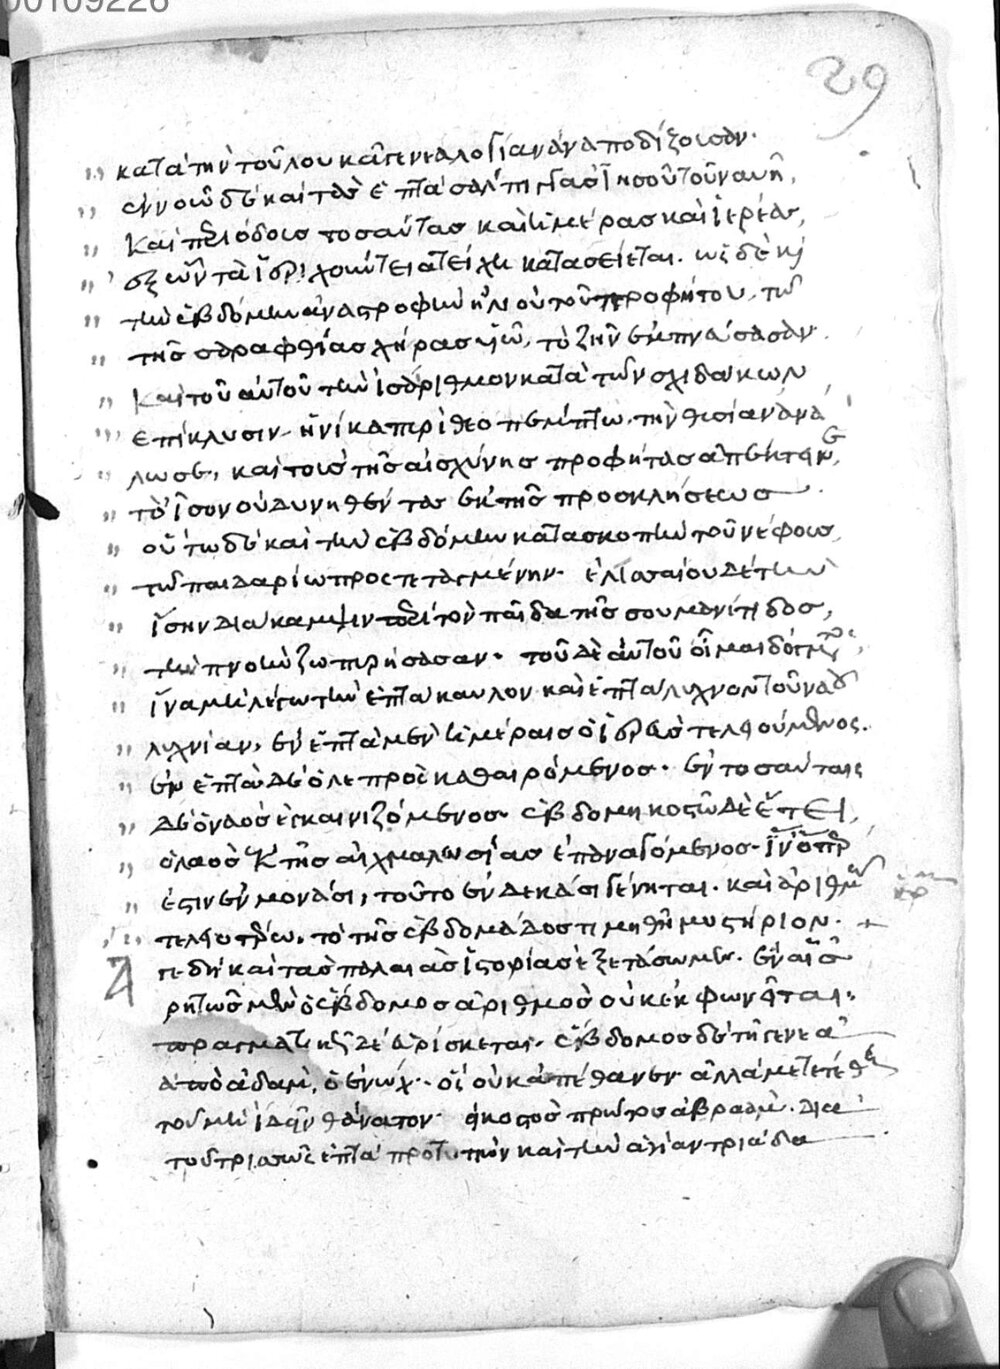 00109226
29
κατὰ τὴν τοῦ λουκᾶ γενεαλογίαν ἀναποδίζουσαν.
ἐννοῶ δὲ καὶ τὰς ἑπτὰ σάλπιγγας ἰησοῦ τοῦ ναυῆ,
καὶ περιόδους τοσαύτας καὶ ἡμέρας καὶ ἱερέας,
ἐξ ὧν τὰ ἱεριχούντεια τείχη κατασείεται. ὡς δὲ καὶ
τὴν ἑβδόμην ἀναστροφὴν ἠλιοὺ τοῦ προφήτου, τῶ
τῆς σαραφθίας χήρας υἱῶ, τὸ ζῆν ἐμπνεύσασαν.
καὶ τοῦ αὐτοῦ τὴν ἰσάριθμον κατὰ τῶν σχιδάκων
ἐπίκλυσιν ἡνίκα πυρὶ θεοπέμπτω, τὴν θυσίαν ἀνά
λωσε, καὶ τοὺς τῆς αἰσχύνης προφήτας ἀπέκτεινε,
τὸ ἴσον οὐ δυνηθέντας ἐκ τῆς προσκλήσεως
οὕτω δὲ καὶ τὴν ἑβδόμην κατασκοπὴν τοῦ νέφους,
τῶ παιδαρίω προστεταγμένην. ἐλισσαίου δὲ τὴν
ἴσην διάκαμψιν περὶ τὸν παῖδα τῆς σουμανίτιδος,
τὴν πνοὴν ζωπυρήσασαν. τοῦ δὲ αὐτοῦ οἶμαι δόγματος,
ἵνα μὴ λέγω τὴν ἑπτάκαυλον καὶ ἑπτάλυχνον τοῦ ναοῦ
λυχνίαν, ἐν ἑπτὰ μὲν ἡμέραις ὁ ἱερεὺς τελειούμενος.
ἐν ἑπτὰ δὲ ὁ λεπρὸς καθαιρόμενος. ἐν τοσαύταις
δὲ ὁ ναὸς ἐγκαινιζόμενος ἑβδομηκοστῶ δὲ ἔτει,
ὁ λαὸς ἐκ τῆς αἰχμαλωσίας ἐπαναγόμενος. ἵν' ὅπερ
ἐστὶν ἐν μονάσι, τοῦτο ἐν δεκάσι γένηται. καὶ ἀριθμῶ
τελεωτέρω, τὸ τῆς ἑβδομάδος τιμηθῆ μυστήριον.
πειδὴ καὶ τὰς παλαιὰς ἱστορίας ἐξετάσωμεν. ἐν αἷς
ῥητῶς μὲν ὁ ἕβδομος ἀριθμὸς οὐκ ἐκφωνεῖται.
πραγματικῶς δὲ εὑρίσκεται. ἕβδομος δὲ τῆ γενεᾶ
ἀπὸ ἀδὰμ, ὁ ἐνώχ. ὃς οὐκ ἀπέθανεν ἀλλὰ μετετέθη
τοῦ μὴ ἰδεῖν θάνατον εἰκοστὸς πρῶτος ἀβραάμ. διὰ
τοῦ τρισσῶς ἑπτὰ προτυπῶν καὶ τὴν ἁγίαν τριάδα